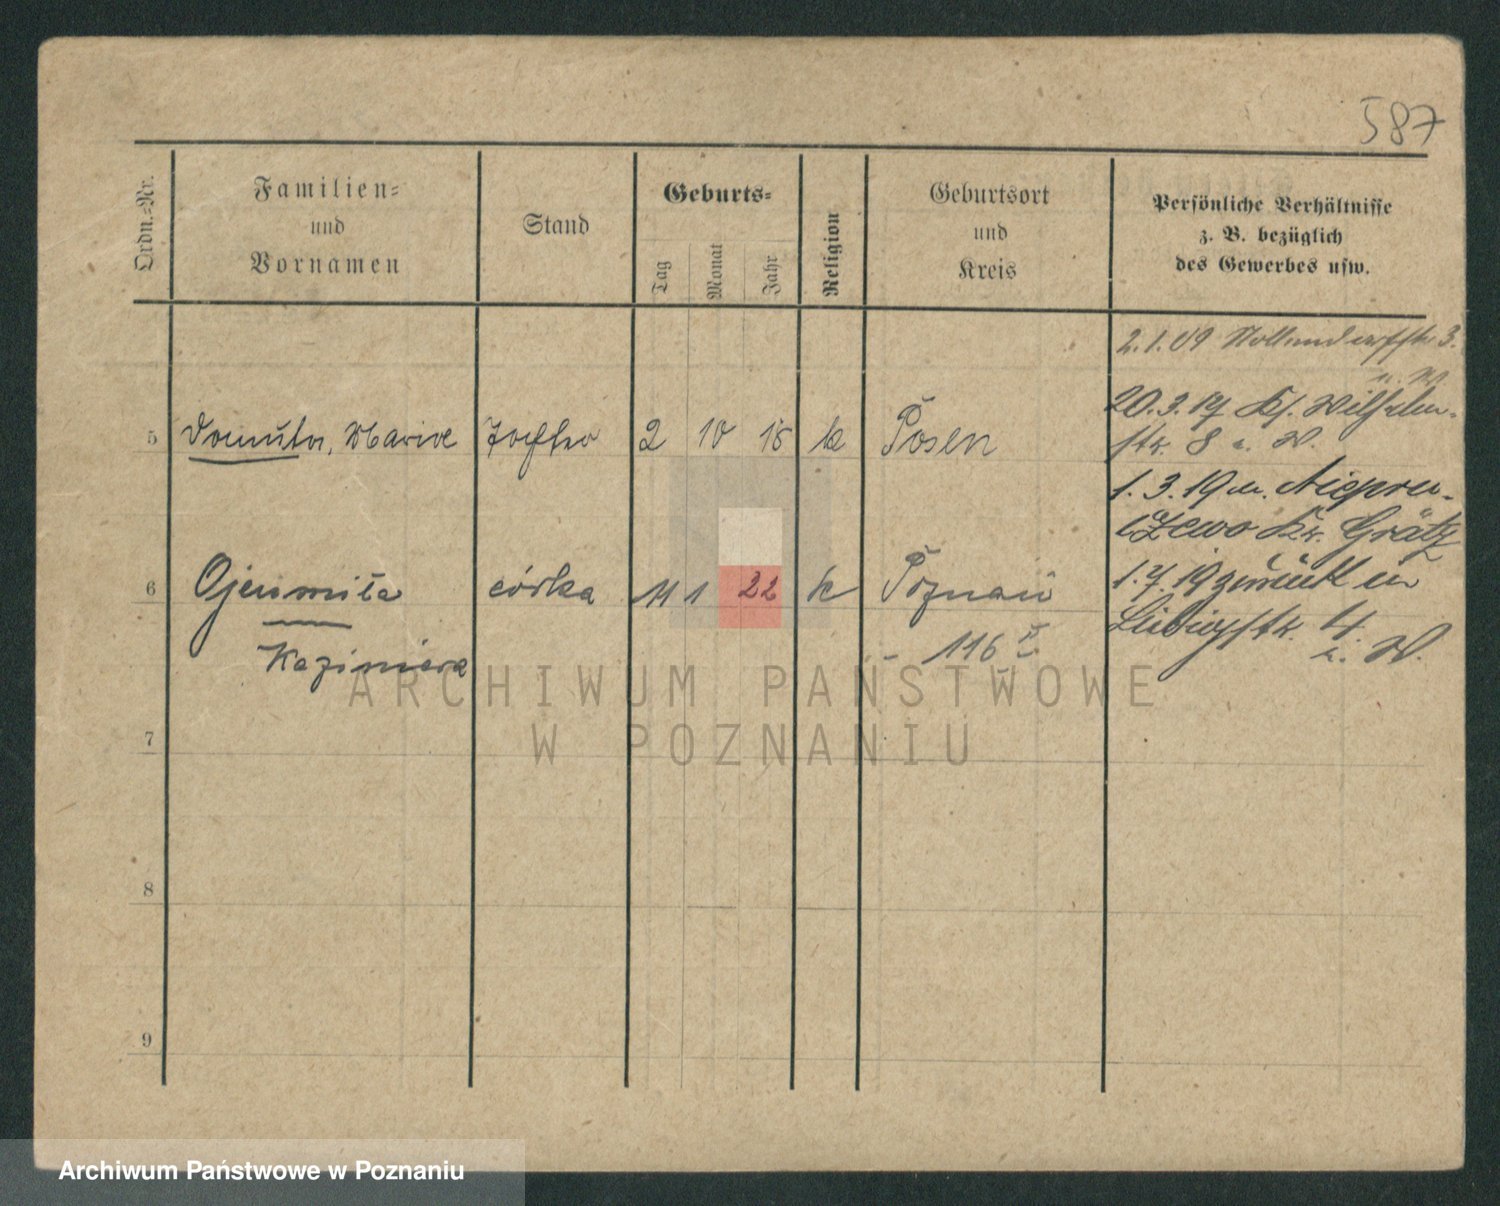 587
Ordn.=Nr.
Familien=
und
Vornamen
Stand
Geburts=
Tag
Monat
Jahr
Religion
Geburtsort
und
Kreis
Persönliche Verhältnisse
z. B. bezüglich
des Gewerbes usw.
2.1.09 Nollendorfstr. 3.
u. W
20.3.19 Kl. Wilhelm-
5 Marie 2 10 18 k Posen
str. 8 u. W.
1.3.19 n.
Kr. Grätz
6 córka 11 1 22 k Poznań
1.7.19 zurück in
Kazimiera
116
str. 4.
u. W.
7
8
9
ARCHIWUM PAŃSTWOWE
W POZNANIU
Archiwum Państwowe w Poznaniu